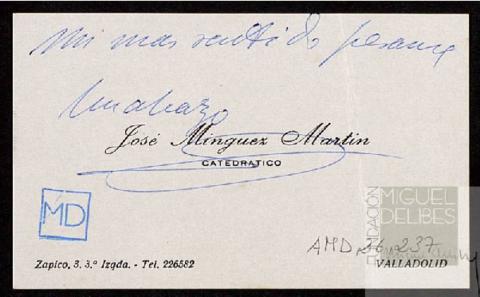 Mi más sentido pésame
Un abrazo
José Minguez Martin
CATEDRATICO
MD
FUNDACIÓN
MIGUEL
DELIBES
AMD, 36, 237
Zapico, 3, 3.º Izqda. - Tel. 226582
VALLADOLID